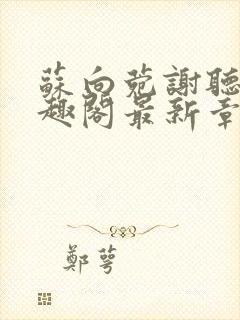 蘇向菀謝聽
趣閣最新章
鄭萼